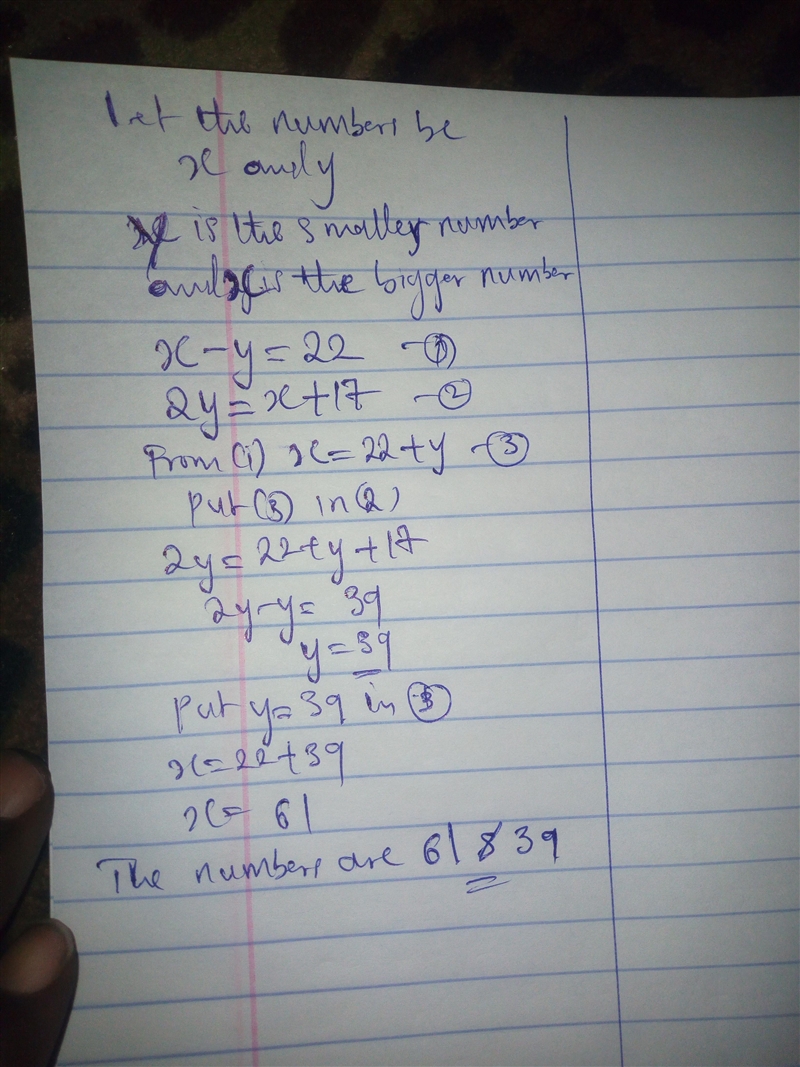 Let the numbers be
x and y
y is the smaller number
and x is the bigger number
x-y=22 -①
2y=x+17 -②
From (i) x=22+y -③
put (3) in (2)
2y=22+y+17
2y-y= 39
y=39
put y=39 in ③
x=22+39
x= 61
The numbers are 61 & 39